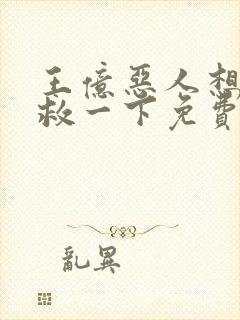 王億惡人想
救一下免費
亂異